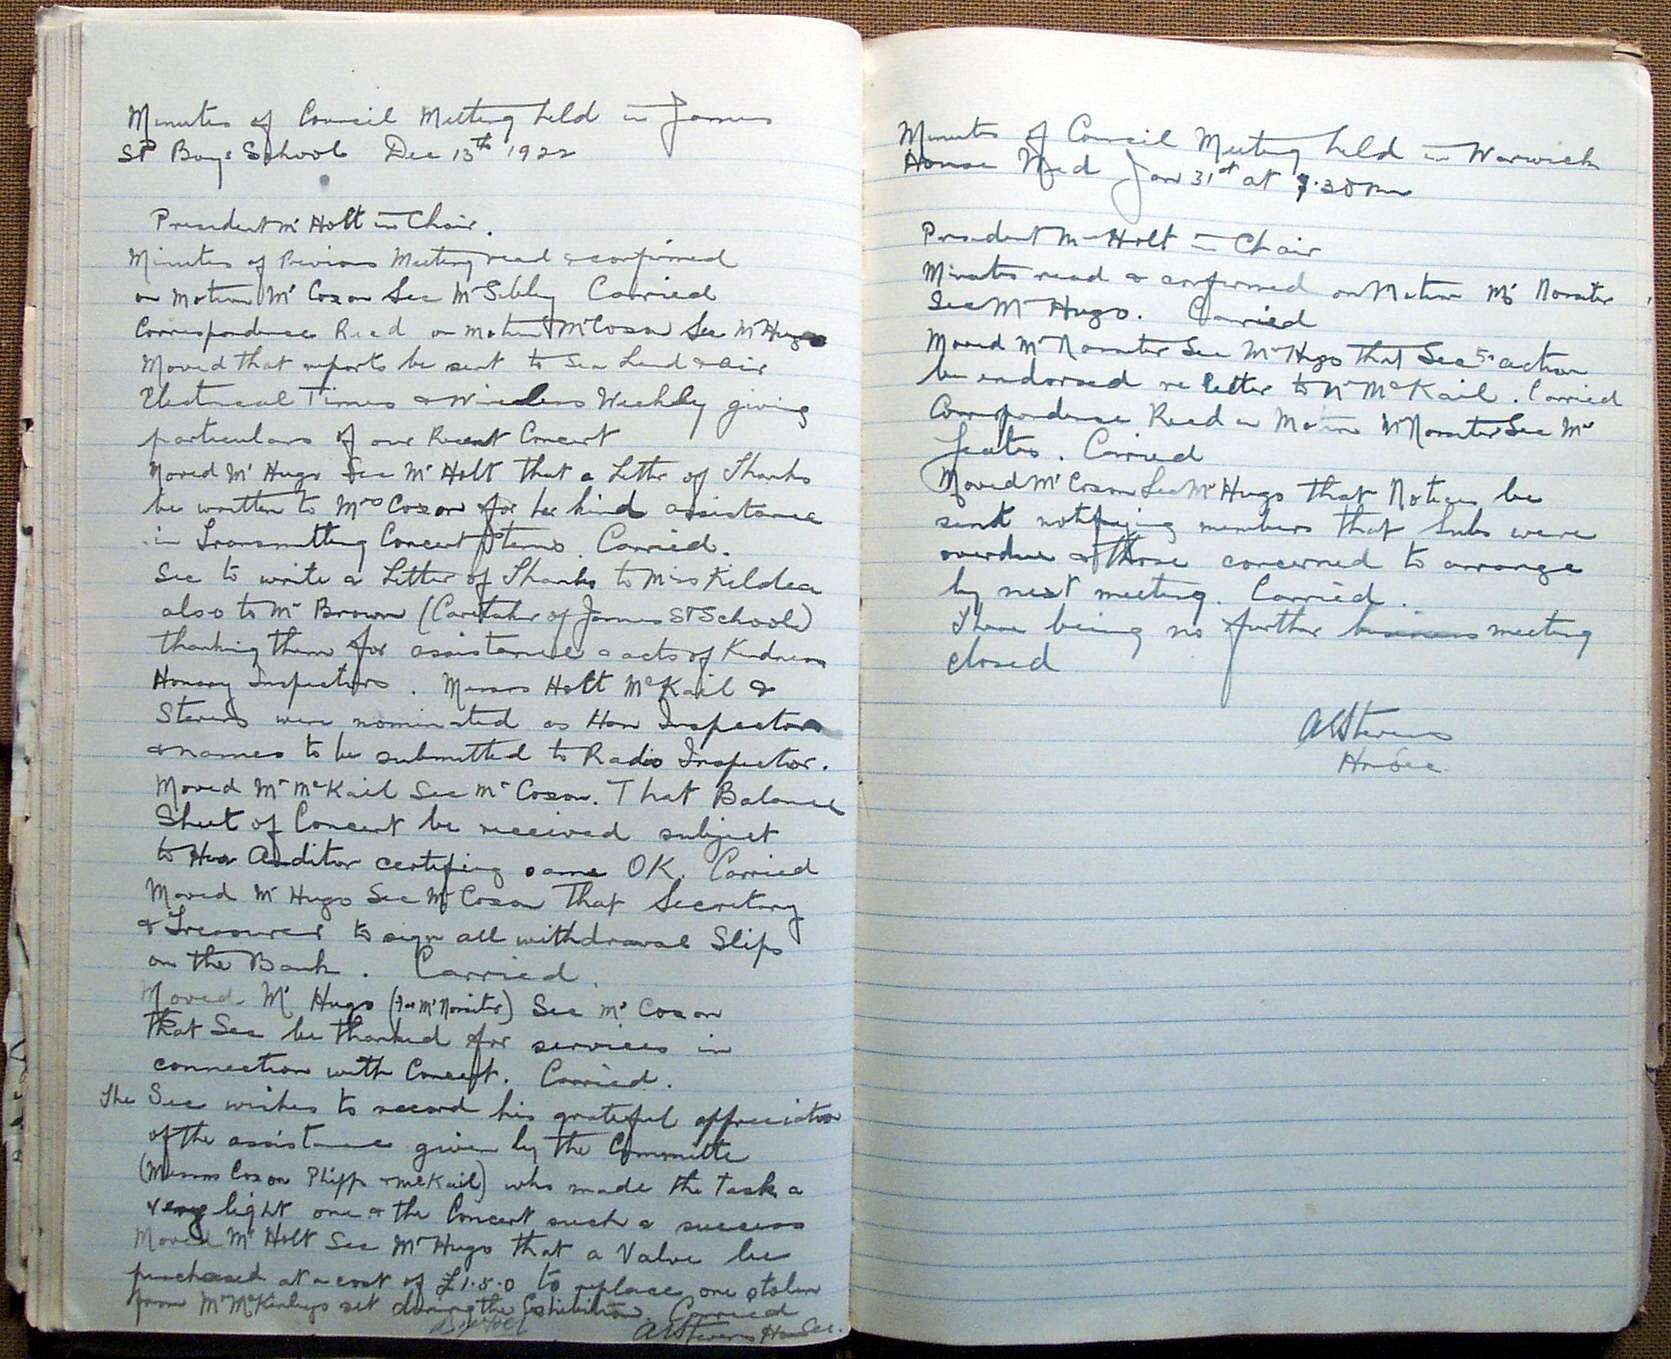 Minutes of Council Meeting held in James
St Boys School Dec 13th 1922
President Mr Holt in Chair.
Minutes of Previous Meeting read & confirmed
on Motion Mr Coxon Sec Mr Sibley Carried
Correspondence Read on motion Mr Coxon Sec Mr Hugo
Moved that reports be sent to Sea Land & Air
Electrical Times & Wireless Weekly giving
particulars of our Recent Concert
Moved Mr Hugo Sec Mr Holt that a Letter of Thanks
be written to Mrs Coxon for her kind assistance
in Transmitting Concert items. Carried.
Sec to write a Letter of Thanks to Miss Kildea
also to Mr Brown (Caretaker of James St School)
thanking them for assistance & acts of Kindness
Honary Inspectors. Messrs Holt McKail &
Stevens were nominated as Hon Inspectors
& names to be submitted to Radio Inspector.
Moved Mr McKail Sec Mr Coxon. That Balance
Sheet of Concert be received subject
to Hon Auditor certifing same OK. Carried
Moved Mr Hugo Sec Mr Coxon That Secretary
& Treasurer to sign all withdrawal Slips
on the Bank. Carried.
Moved Mr Hugo (for Mr Rossiter) Sec Mr Coxon
that Sec be thanked for services in
connection with Concert. Carried.
The Sec wishes to record his grateful appreciation
of the assistance given by the Committe
(Messrs Coxon Phipps & McKail) who made the task a
very light one & the Concert such a success
Moved Mr Holt Sec Mr Hugo that a Valve be
purchased at a cost of £1.5.0 to replace one stolen
from Mr McKinleys set during the Exhibition. Carried
AE Stevens Hon Sec.
Minutes of Council Meeting held in Warwick
House Wed Jan 31st at 7.30 pm
President Mr Holt in Chair
Minutes read & confirmed on Motion Mr Rossiter
Sec Mr Hugo. Carried
Moved Mr Rossiter Sec Mr Hugo that Secs action
be endorsed re letter to Mr McKail. Carried
Correspondence Read on Motion Mr Rossiter Sec Mr
Carried
Moved Mr Coxon Sec Mr Hugo that Notices be
sent notifying members that Subs were
overdue & those concerned to arrange
by next meeting. Carried.
There being no further business meeting
closed
AE Stevens
Hon Sec